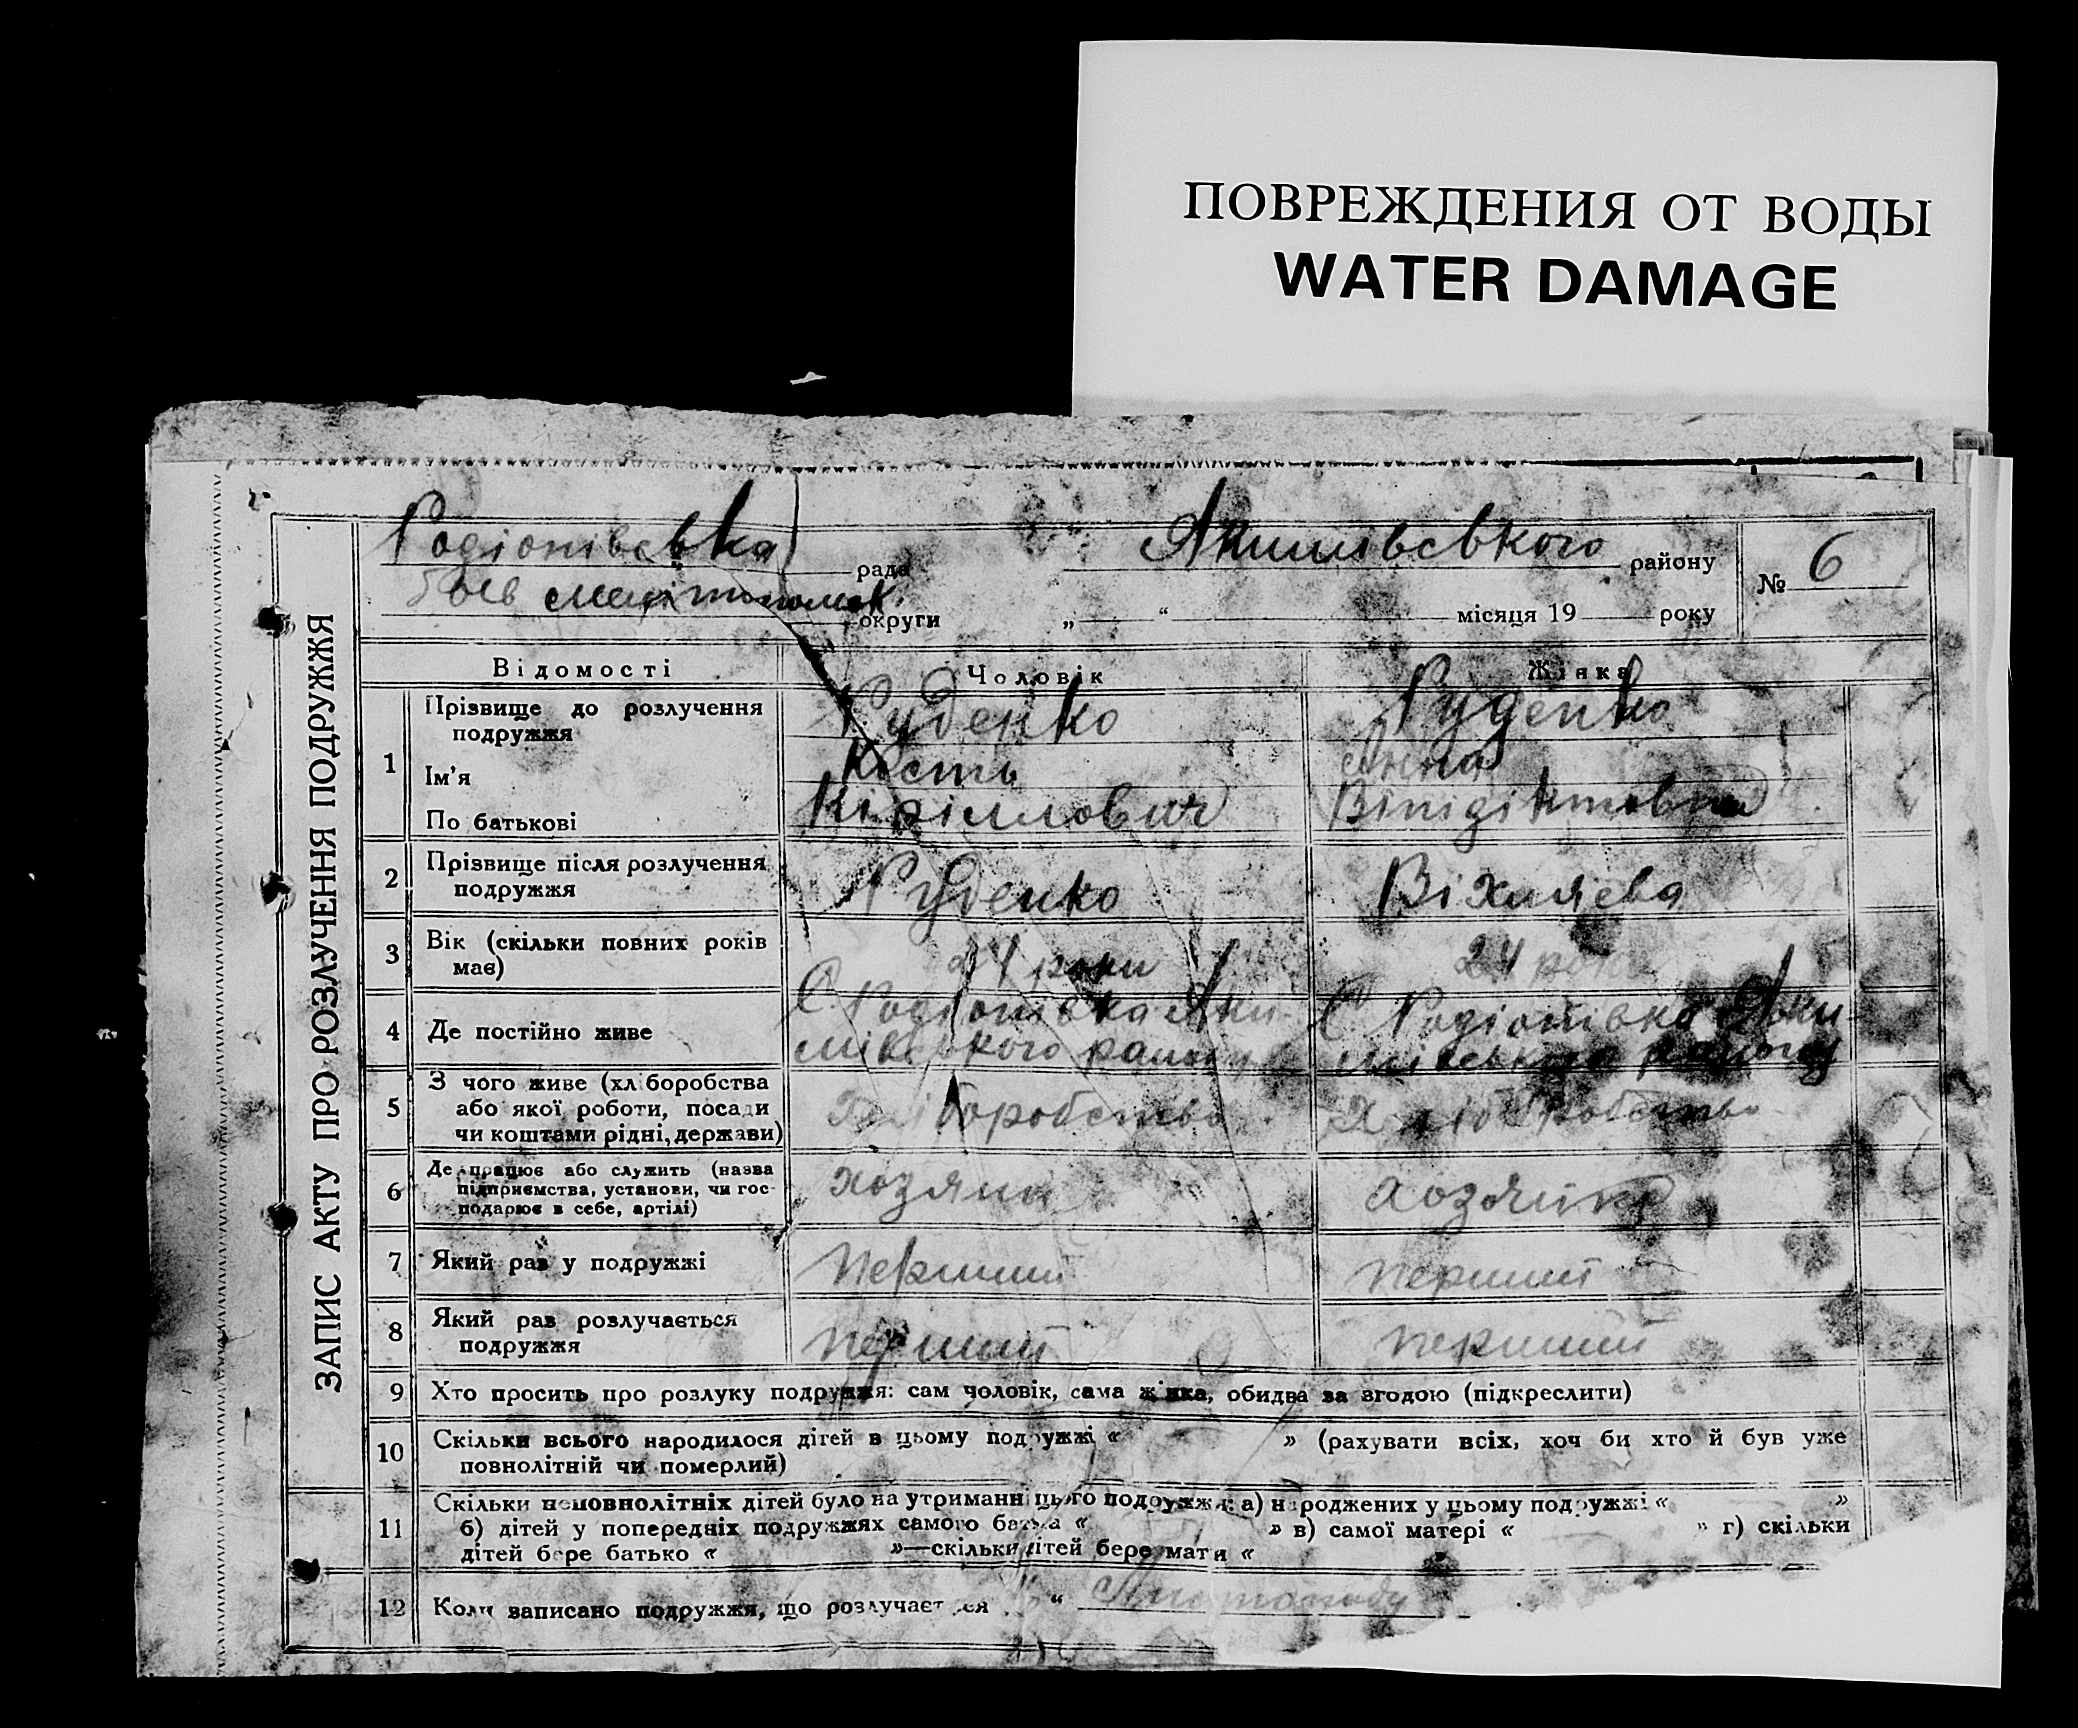 ПОВРЕЖДЕНИЯ ОТ ВОДЫ
WATER DAMAGE
ЗАПИС АКТУ ПРО РОЗЛУЧЕННЯ ПОДРУЖЖЯ
Родіонівська рада
Якимівського району
№ 6
був округи
„ “ місяця 19 року
Відомості
Чоловік
Жінка
1
Прізвище до розлучення
подружжя
Руденко
Руденко
Ім'я
Кость
Анна
По батькові
Кіріллович
Вінідіктовна
2
Прізвище після розлучення
подружжя
Руденко
Віхляєва
3
Вік (скільки повних років
має)
24 роки
24 роки
4
Де постійно живе
С Родіонівка Яки-
мівського району
С Родіонівка Яки-
мівського району
5
З чого живе (хліборобства
або якої роботи, посади
чи коштами рідні, держави)
Хліборобство
Хліборобство
6
Де працює або служить (назва
підприємства, установи, чи гос-
подарює в себе, артілі)
хозяин
хозяйка
7
Який раз у подружжі
перший
перший
8
Який раз розлучається
подружжя
перший
перший
9
Хто просить про розлуку подружжя: сам чоловік, сама жінка, обидва за згодою (підкреслити)
10
Скільки всього народилося дітей в цьому подружжі « » (рахувати всіх, хоч би хто й був уже
повнолітній чи померлий)
11
Скільки неповнолітніх дітей було на утриманні цього подружжя: а) народжених у цьому подружжі « »
б) дітей у попередніх подружжях самого батька « » в) самої матері « » г) скільки
дітей бере батько « »—скільки дітей бере мати « »
12
Коли записано подружжя, що розлучається “ Листопаду